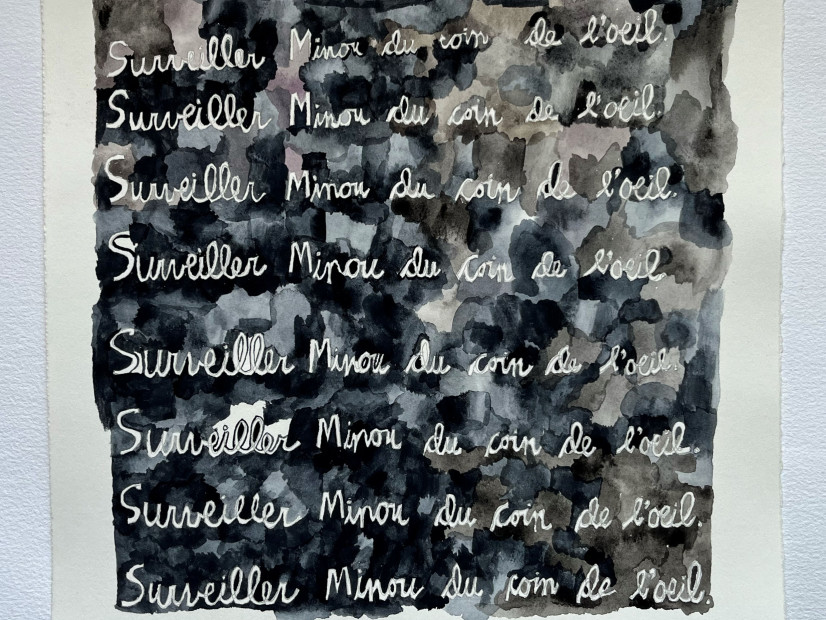 Surveiller Minou du coin de l'oeil.
Surveiller Minou du coin de l'oeil.
Surveiller Minou du coin de l'oeil.
Surveiller Minou du coin de l'oeil
Surveiller Minou du coin de l'oeil.
Surveiller Minou du coin de l'oeil.
Surveiller Minou du coin de l'oeil.
Surveiller Minou du coin de l'oeil.